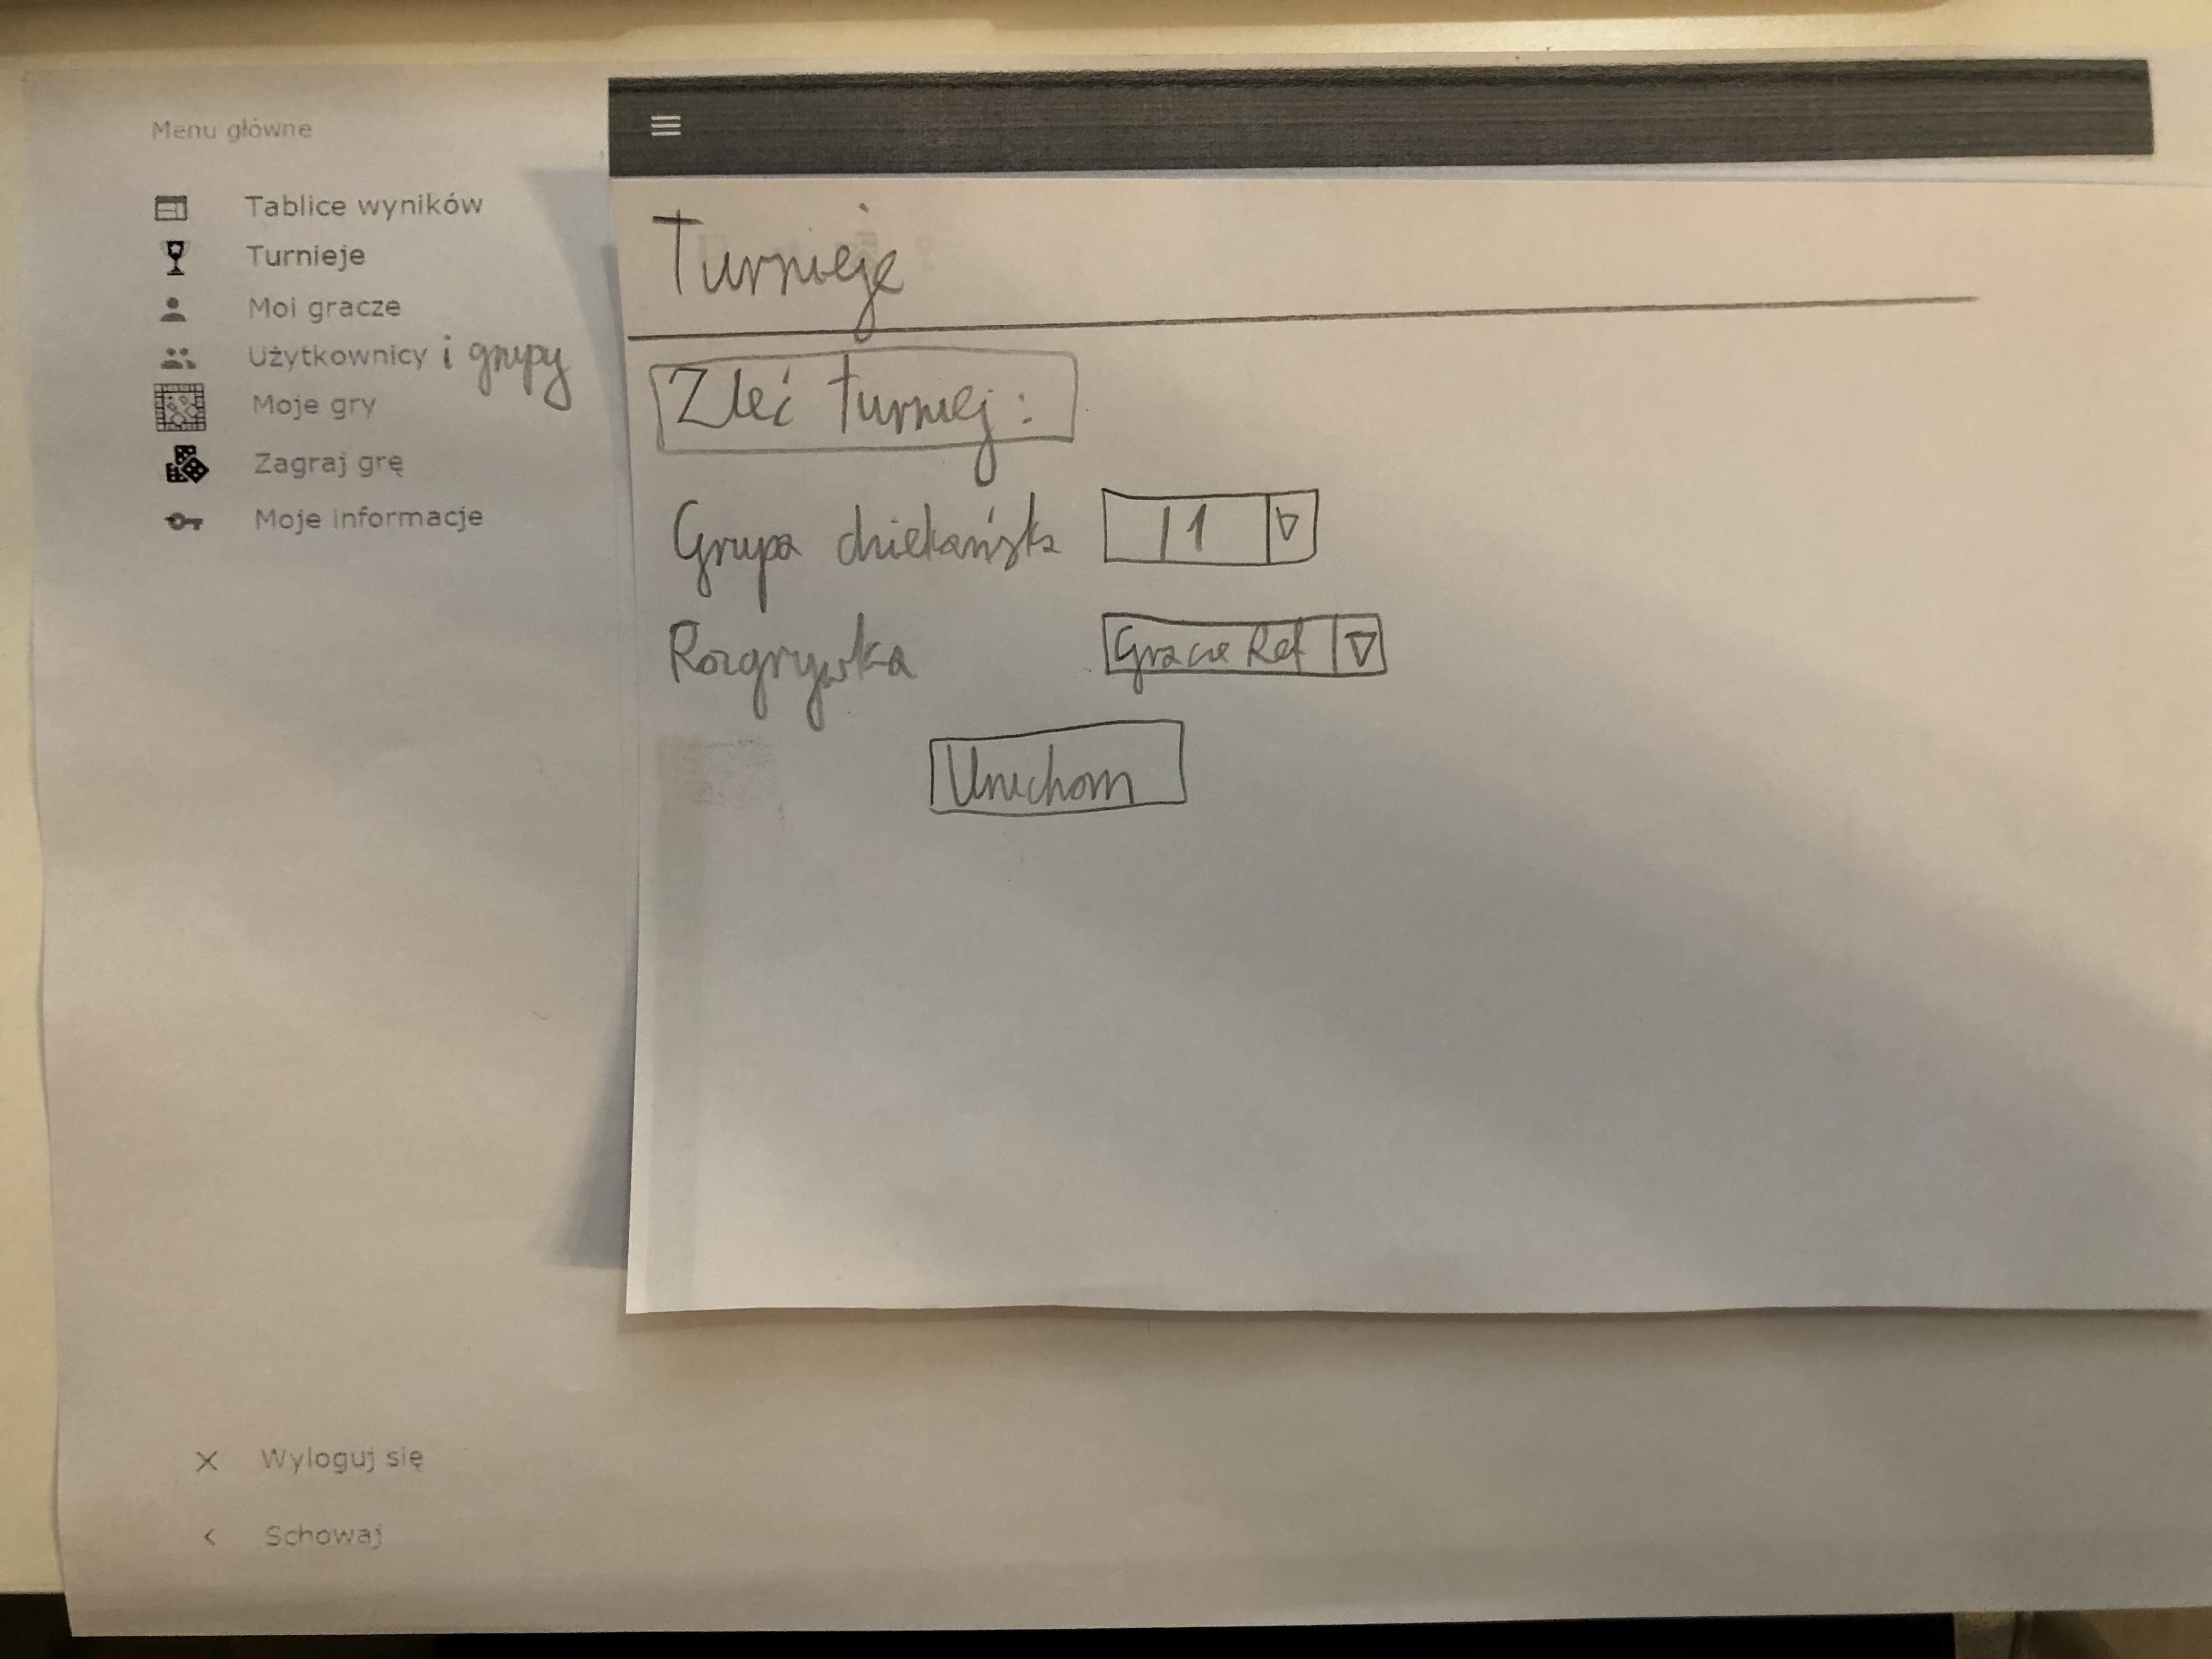 Menu główne
Tablice wyników
Turnieje
Moi gracze
Użytkownicy i grupy
Moje gry
Zagraj grę
Moje informacje
Wyloguj się
Schowaj
Turnieje
Zleć turniej:
Grupa dziekańska 11
Rozgrywka Gracze Ref
Uruchom